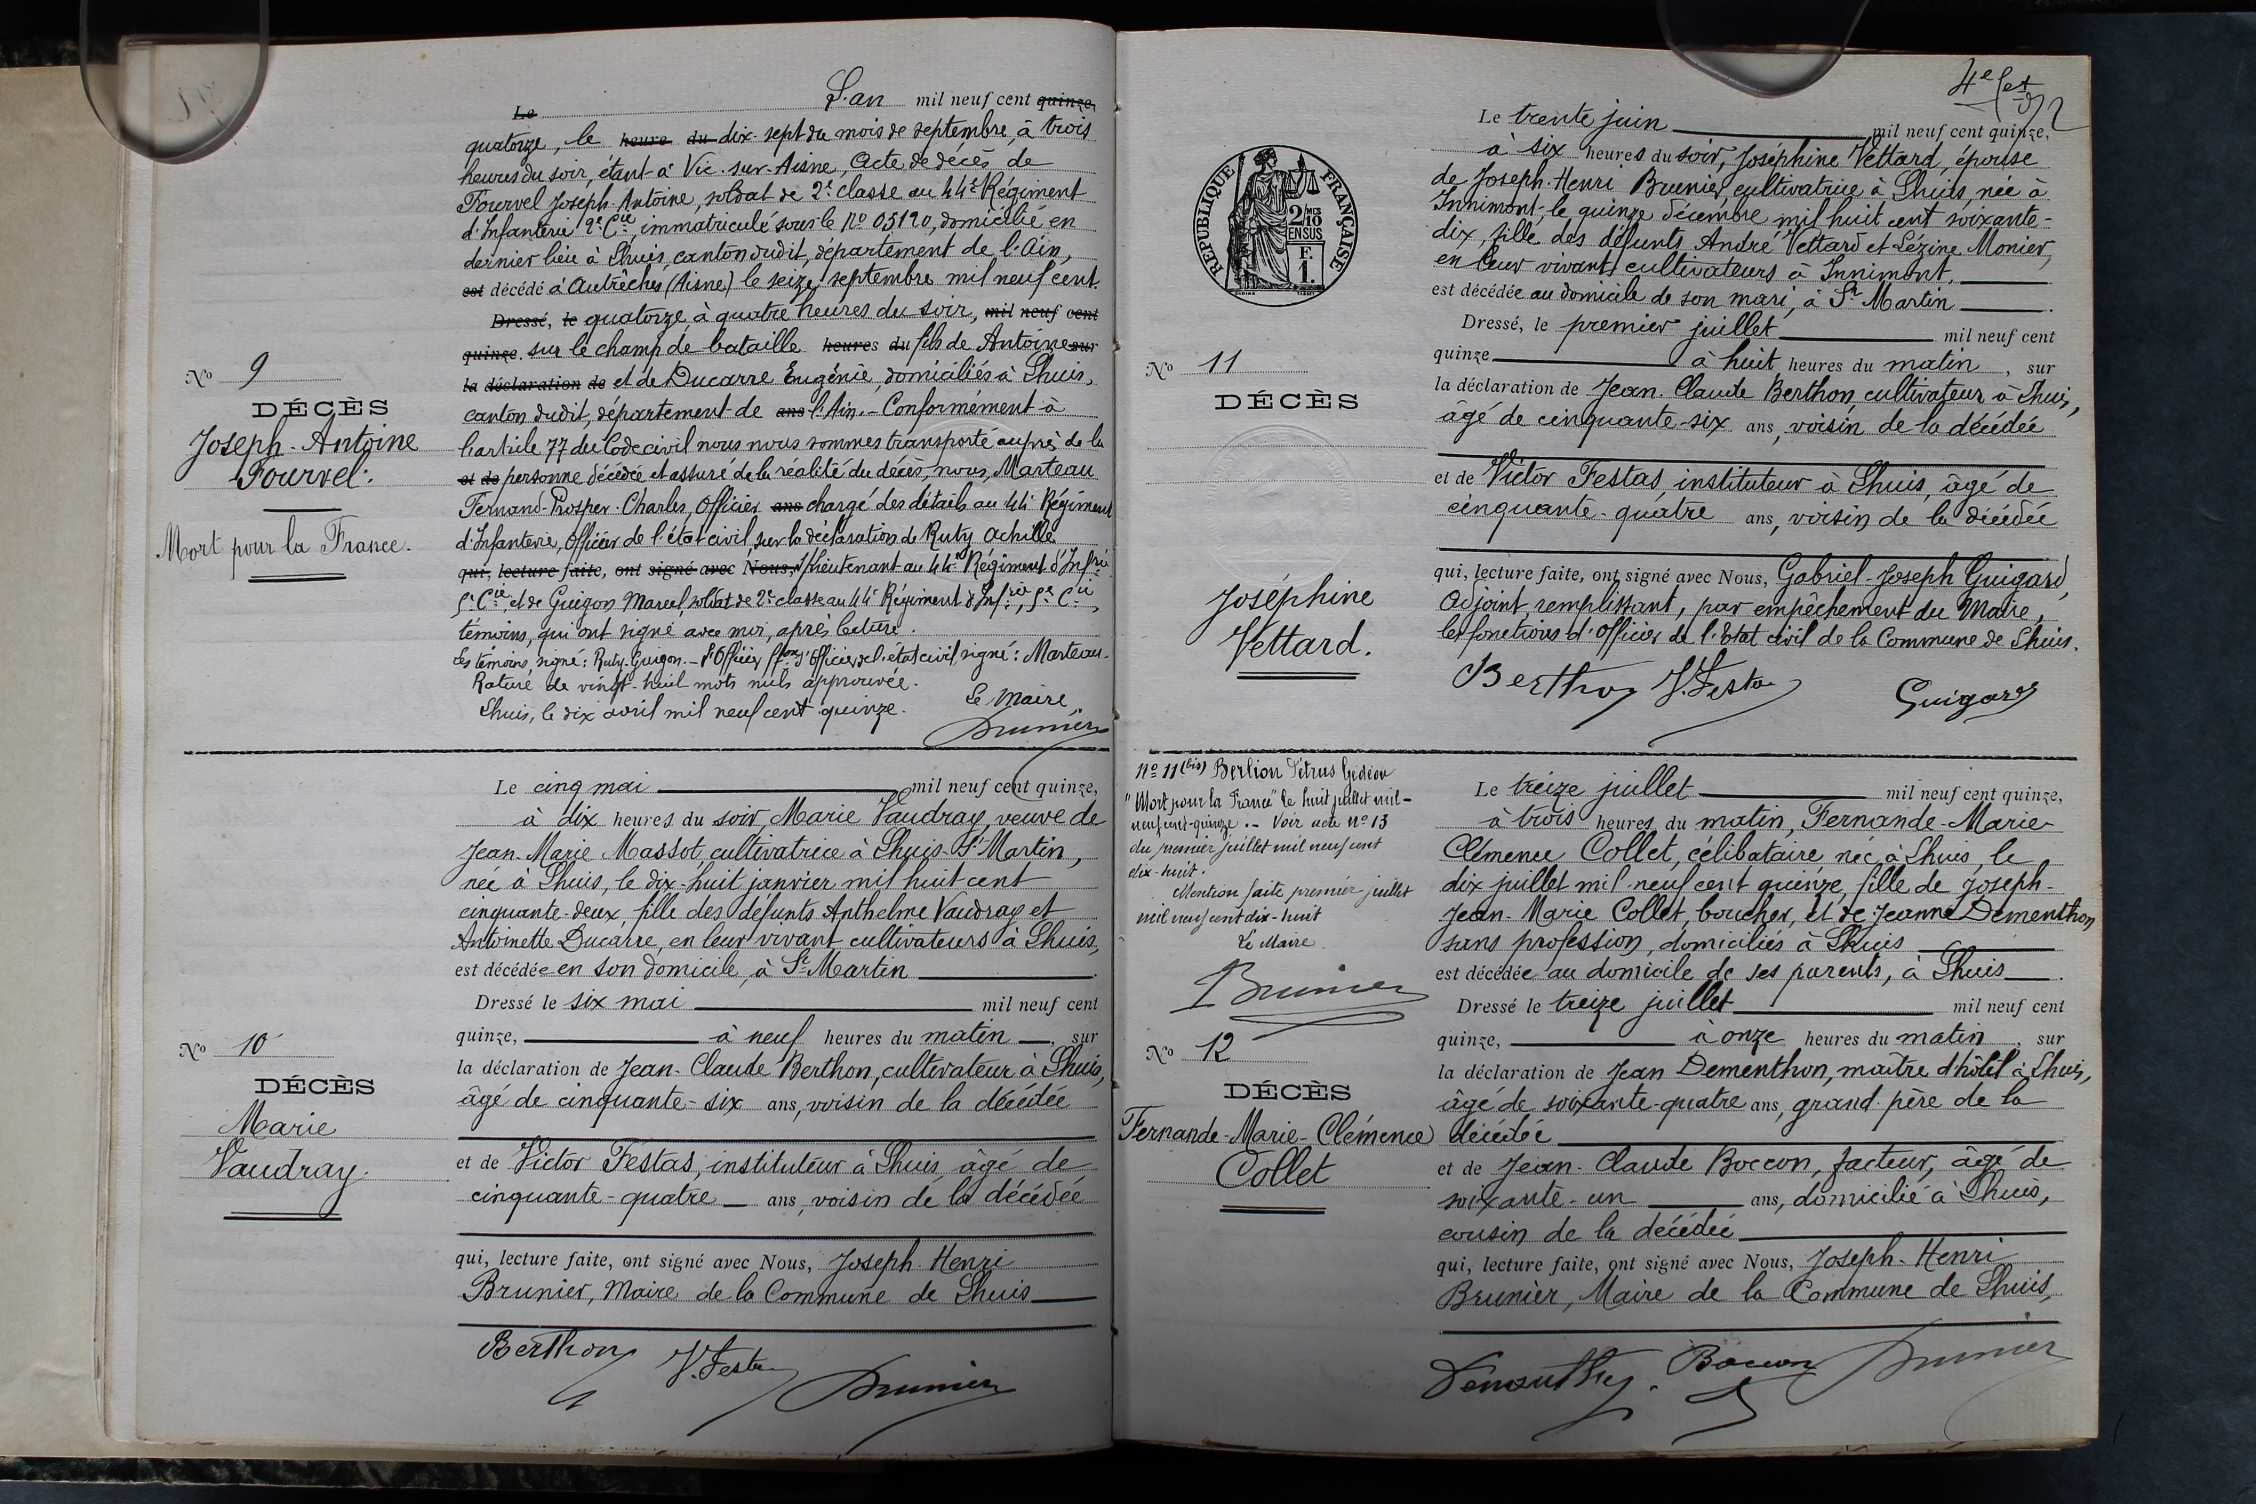 Le L'an mil neuf cent quinze,
quatorze, le heure du dix-sept du mois de septembre, à trois
heures du soir, étant à Vic-sur-Aisne, Acte de décès de
Fourvel Joseph-Antoine, soldat de 2e classe au 44e Régiment
d'Infanterie 2e Cie, immatriculé sous le No 05120, domicilié en
dernier lieu à Lhuis, canton dudit, département de l'Ain,
est décédé à Autrêches (Aisne) le seize septembre mil neuf cent
Dressé, le quatorze à quatre heures du soir, mil neuf cent
quinze. sur le champ de bataille heures du fils de Antoine sur
la déclaration de et de Ducarre Eugénie, domiciliés à Lhuis,
canton dudit, département de ans l'Ain. - Conformément à
l'article 77 du Code civil nous nous sommes transporté auprès de la
et de personne décédée et assuré de la réalité du décès, nous, Marteau
Fernand-Prosper-Charles, Officier ans chargé des détails au 44e Régiment
d'Infanterie, Officier de l'état civil, sur la déclaration de Ruty Achille
qui, lecture faite, ont signé avec Nous, s/lieutenant au 44e Régiment d'Infrie
5e Cie, et de Guigon Marcel, soldat de 2e classe au 44e Régiment d'Infrie, 5e Cie,
témoins, qui ont signé avec moi, après lecture.
Les témoins, signé: Ruty. Guigon. - L'Officier ffons d'Officier de l'état civil signé: Marteau.
Raturé de vingt-huit mots nuls approuvée.
Lhuis, le dix avril mil neuf cent quinze. Le Maire
Brunier
No 9
DÉCÈS
Joseph-Antoine
Fourvel.
Mort pour la France.
Le cinq mai mil neuf cent quinze,
à dix heures du soir, Marie Vaudray, veuve de
Jean-Marie Massot, cultivatrice à Lhuis-St Martin,
née à Lhuis, le dix-huit janvier mil huit cent
cinquante-deux, fille des défunts Anthelme Vaudray et
Antoinette Ducarre, en leur vivant cultivateurs à Lhuis,
est décédée en son domicile, à St Martin
Dressé le six mai mil neuf cent
quinze, à neuf heures du matin, sur
la déclaration de Jean-Claude Berthon, cultivateur à Lhuis,
âgé de cinquante-six ans, voisin de la décédée
et de Victor Festas, instituteur à Lhuis, âgé de
cinquante-quatre ans, voisin de la décédée
qui, lecture faite, ont signé avec Nous, Joseph-Henri
Brunier, Maire de la Commune de Lhuis
Berthon V. Festas Brunier
No 10
DÉCÈS
Marie
Vaudray.
4e fet
RÉPUBLIQUE FRANÇAISE
2/10 MES
EN SUS
F.
1.
Le trente juin mil neuf cent quinze,
à six heures du soir, Joséphine Vettard, épouse
de Joseph-Henri Brunier, cultivatrice à Lhuis, née à
Innimont, le quinze décembre mil huit cent soixante-
dix, fille des défunts André Vettard et Lézine Monier,
en leur vivant cultivateurs à Innimont,
est décédée au domicile de son mari, à St Martin
Dressé, le premier juillet mil neuf cent
quinze à huit heures du matin, sur
la déclaration de Jean-Claude Berthon, cultivateur à Lhuis,
âgé de cinquante-six ans, voisin de la décédée
et de Victor Festas, instituteur à Lhuis, âgé de
cinquante-quatre ans, voisin de la décédée
qui, lecture faite, ont signé avec Nous, Gabriel-Joseph Guigard,
Adjoint, remplissant, par empêchement du Maire,
les fonctions d'Officier de l'Etat civil de la Commune de Lhuis.
Berthon V. Festas Guigard
No 11
DÉCÈS
Joséphine
Vettard.
No 11 (bis) Berlion Pétrus Gédéon
"Mort pour la France" le huit juillet mil-
neuf cent-quinze. - Voir acte No 13
du premier juillet mil neuf cent
dix-huit.
Mention faite premier juillet
mil neuf cent dix-huit
Le Maire
Brunier
No 12
DÉCÈS
Fernande-Marie-Clémence
Collet
Le treize juillet mil neuf cent quinze,
à trois heures du matin, Fernande-Marie-
Clémence Collet, célibataire née à Lhuis, le
dix juillet mil-neuf cent quinze, fille de Joseph-
Jean-Marie Collet, boucher, et de Jeanne Dementhon
sans profession, domiciliés à Lhuis
est décédée au domicile de ses parents, à Lhuis.
Dressé le treize juillet mil neuf cent
quinze, à onze heures du matin, sur
la déclaration de Jean Dementhon, maître d'hôtel à Lhuis,
âgé de soixante-quatre ans, grand-père de la
décédée
et de Jean-Claude Boccon, facteur, âgé de
soixante-un ans, domicilié à Lhuis,
cousin de la décédée
qui, lecture faite, ont signé avec Nous, Joseph-Henri
Brunier, Maire de la Commune de Lhuis,
Dementhon Boccon Brunier